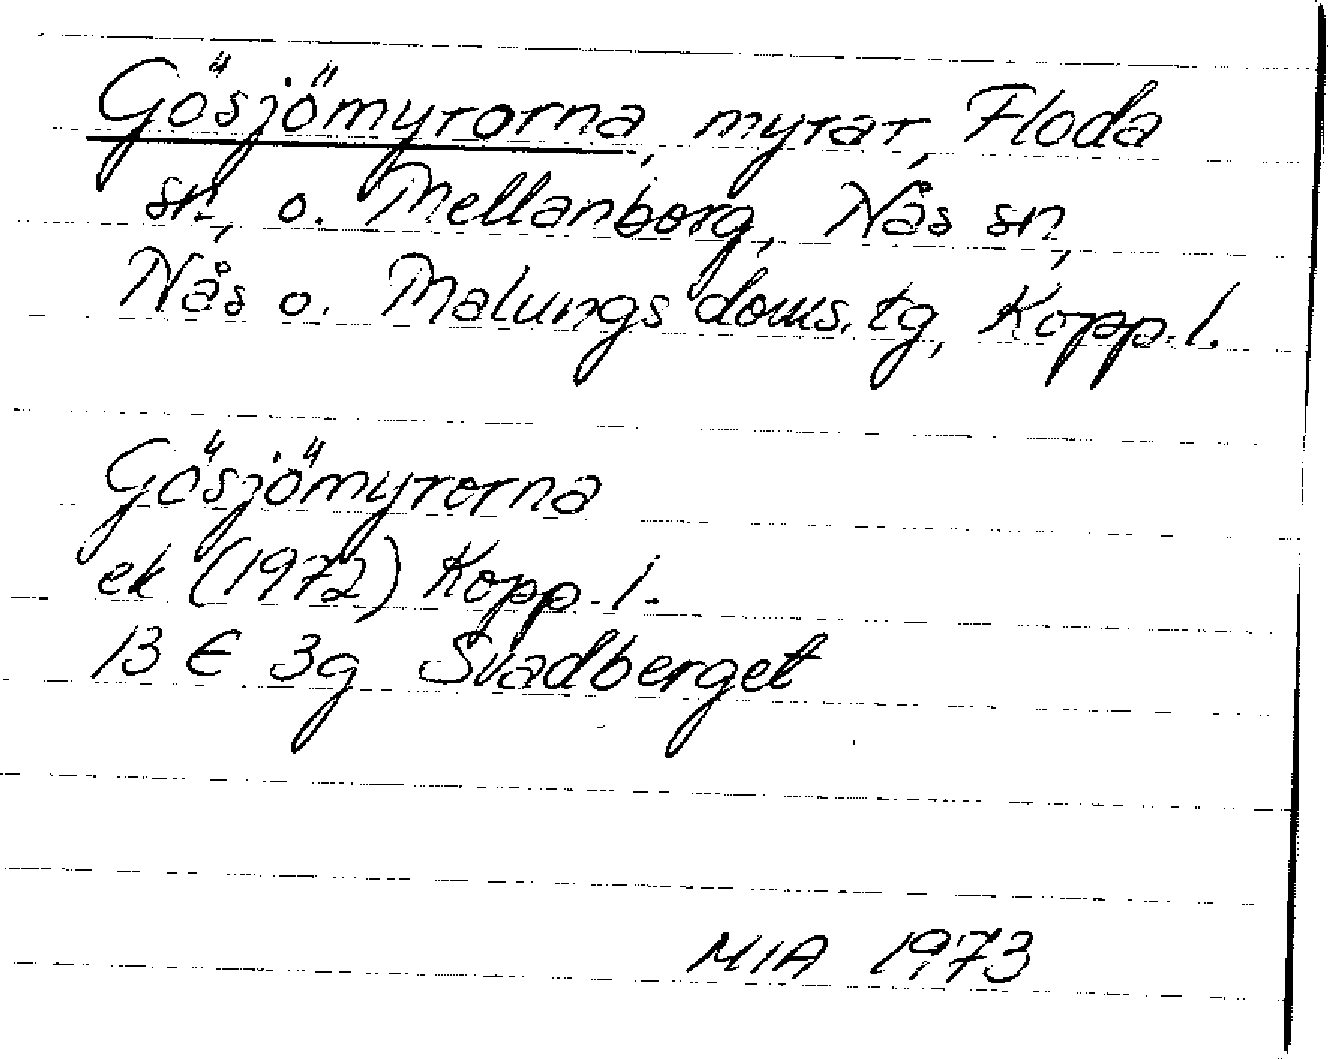 Gösjömyrorna, myrar, Floda
sn, o. Mellanborg, Nås sn,
Nås o. Malungs doms. tg, Kopp. l.
Gösjömyrorna
ek (1972) Kopp. l.
13 E 3g Svadberget
MIA 1973